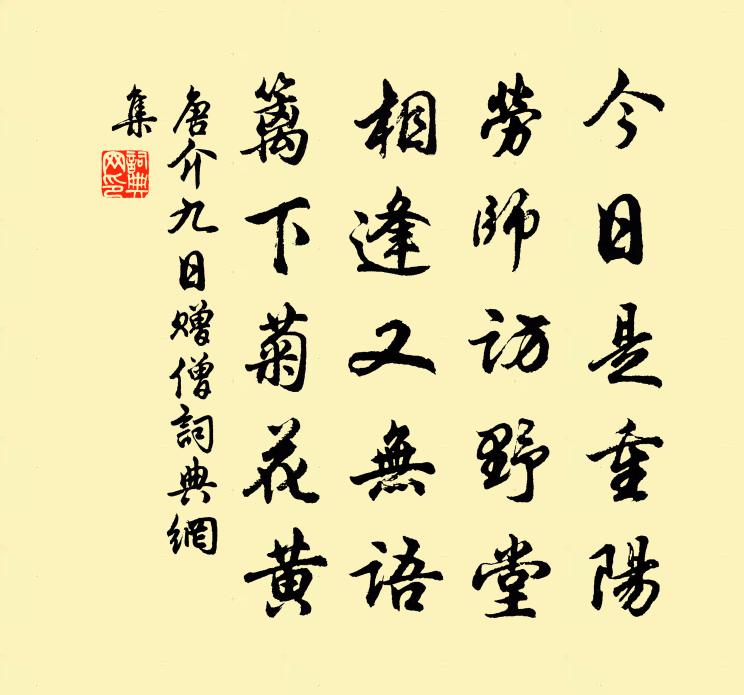 今日是重陽
勞師訪野堂
相逢又無語
籬下菊花黃
唐介九日贈僧詞典網
集
詞典
网印